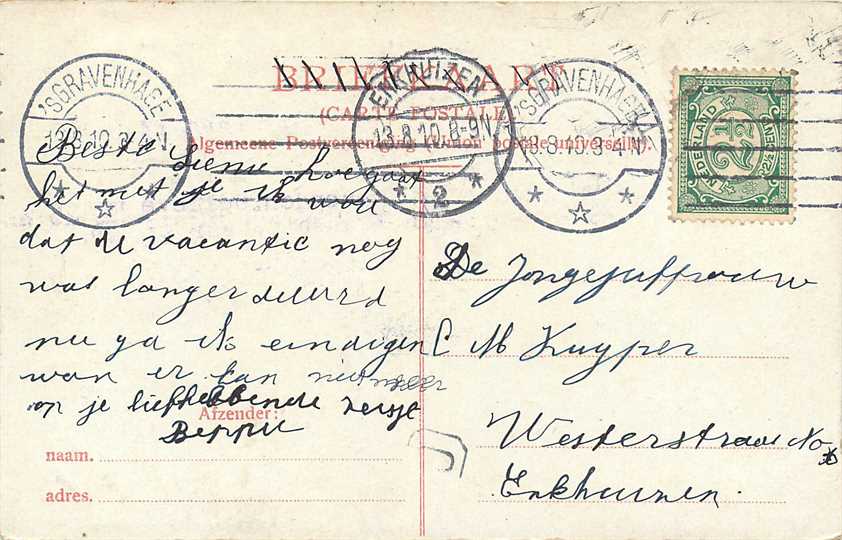 BRIEFKAART
(CARTE POSTALE)
Algemeene Postvereeniging (Union postale universelle).
'SGRAVENHAGE
13.8.10.3-4.N
ENKHUIZEN
13.8.10.8-9N
2
'SGRAVENHAGE
13.8.10.3-4.N
NEDERLAND
2½
CENT
Beste Sienu hoe gaat
het met je ik wou
dat de vacantie nog
wat langer duurd
nu ga ik eindigen
wan er kan niet meer
op je liefhebbende zusje
Beppie
De Jongejuffrouw
C M Kuyper
Westerstraat No
Enkhuizen.
Afzender:
naam.
adres.